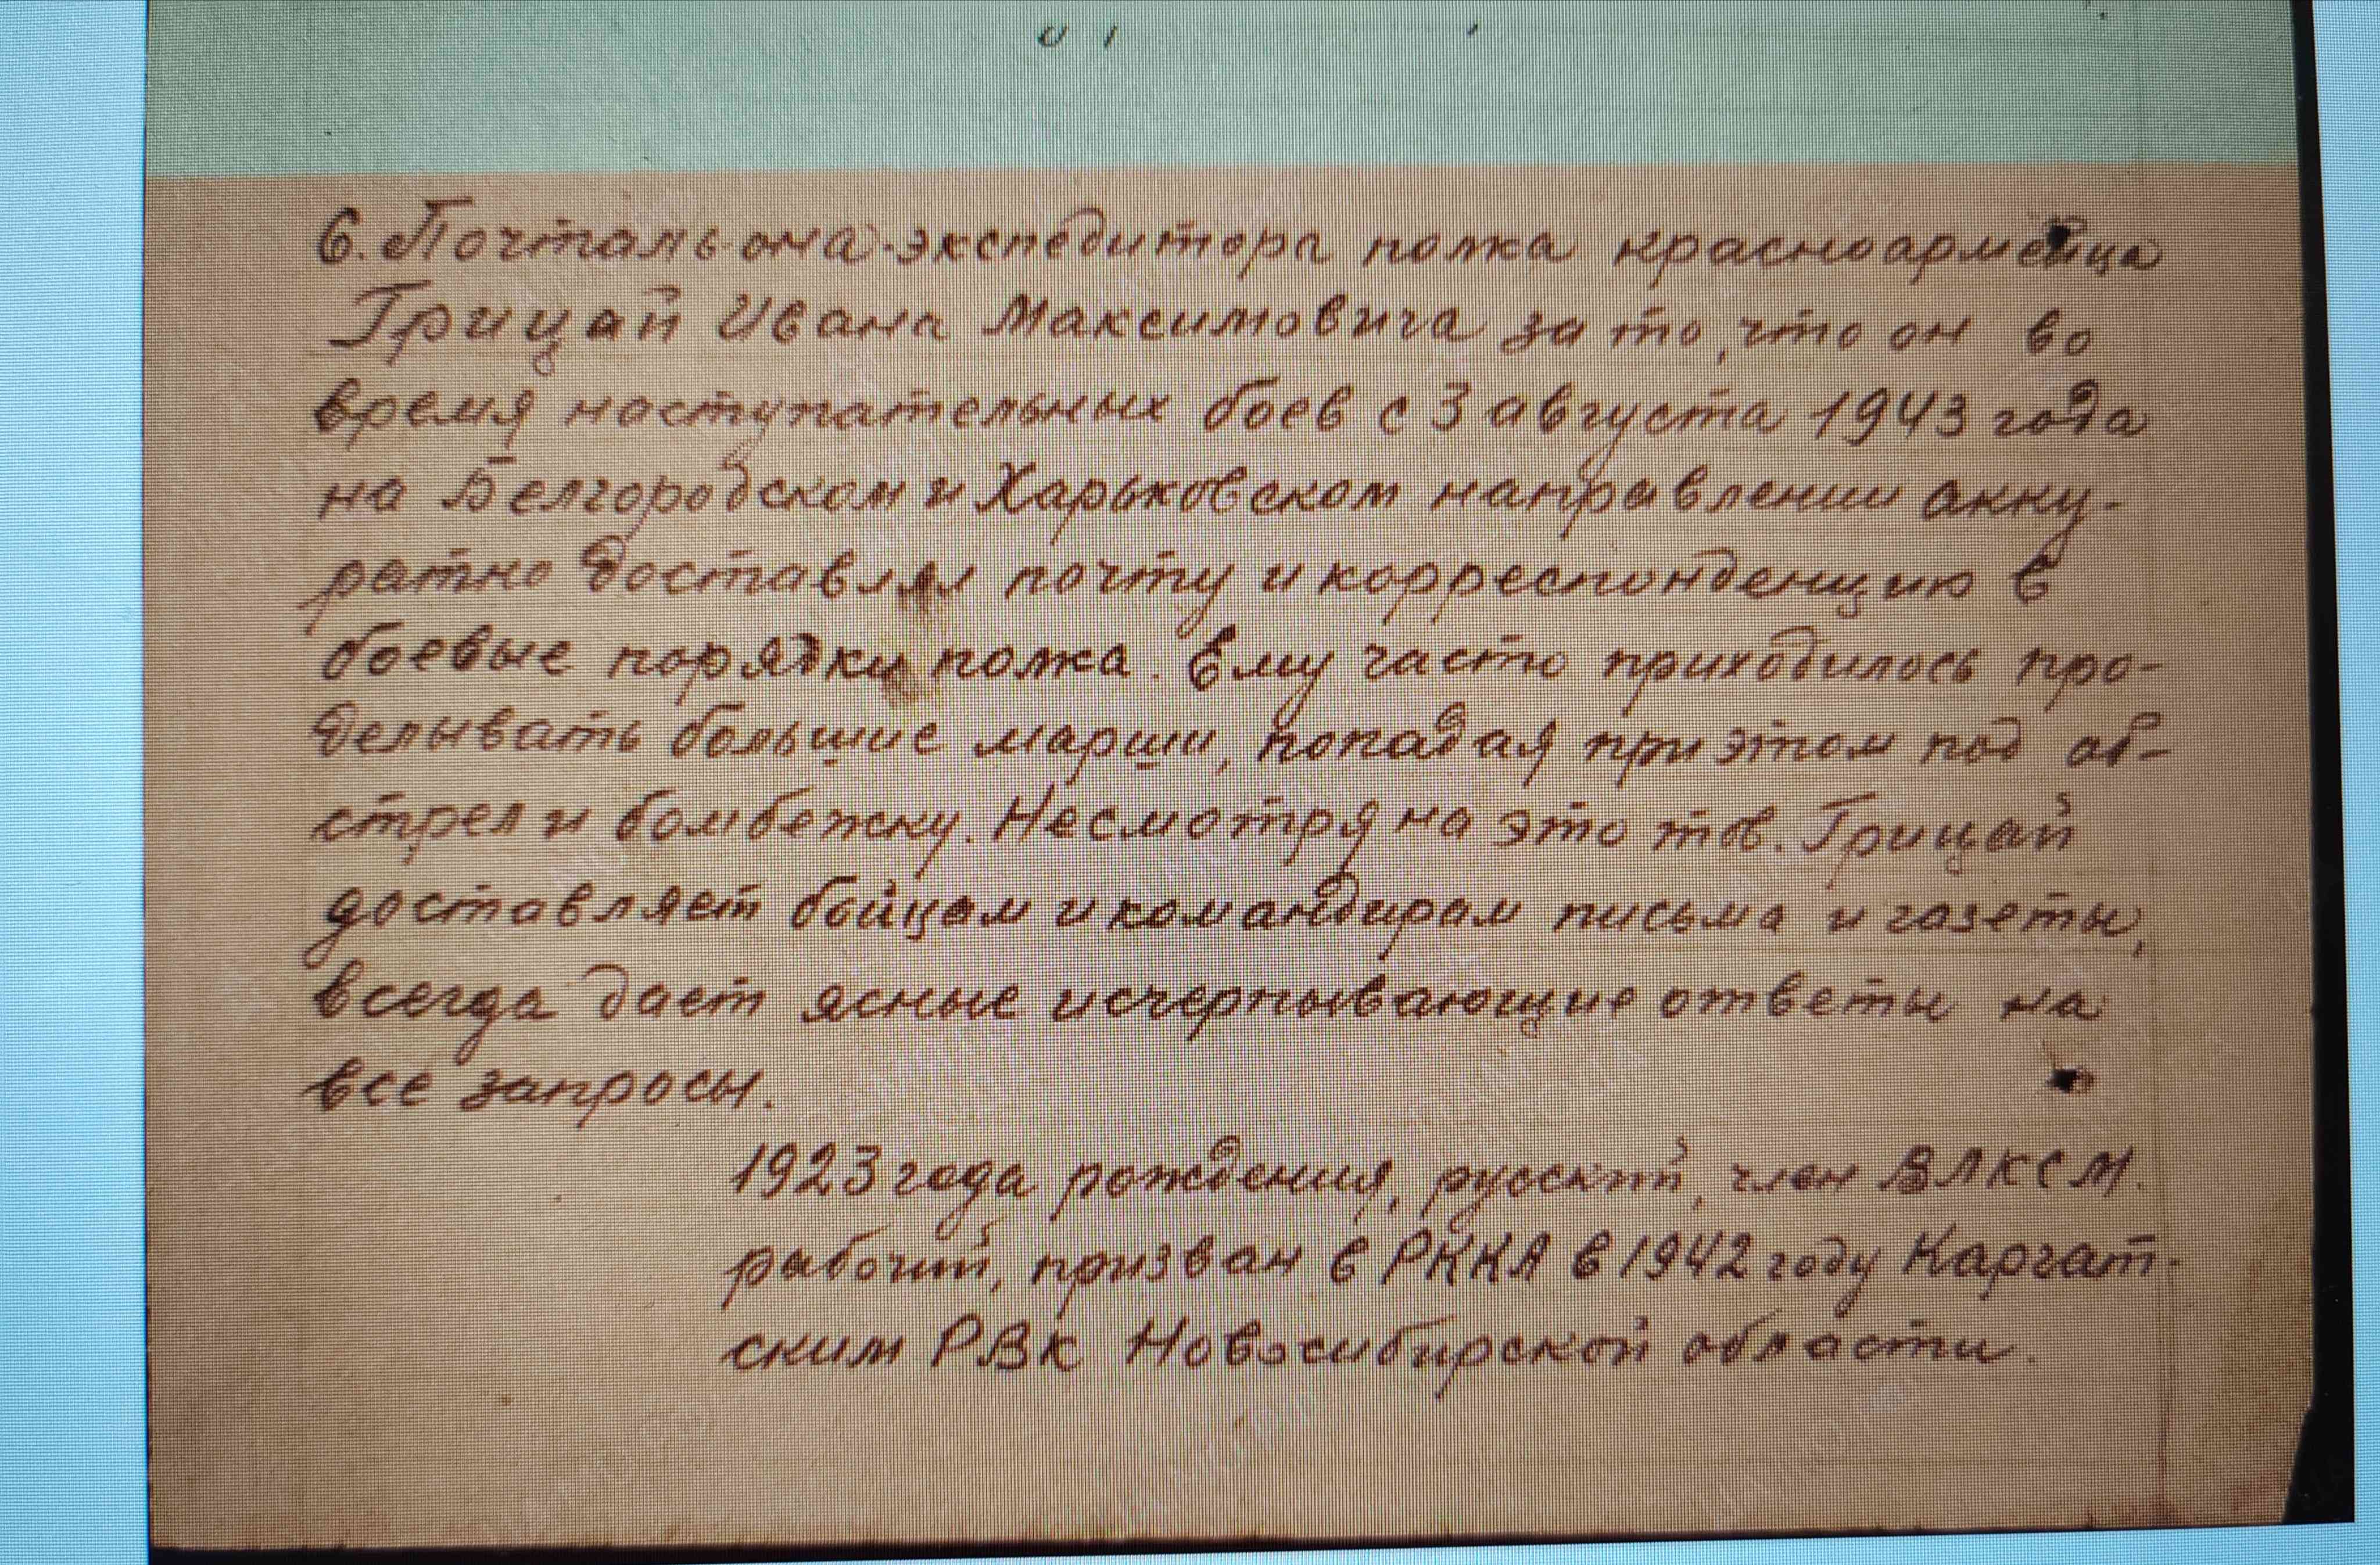 6. Почтальона-экспедитора полка красноармейца
Грицай Ивана Максимовича за то, что он во
время наступательных боев с 3 августа 1943 года
на Белгородском и Харьковском направлении акку-
ратно доставлял почту и корреспонденцию в
боевые порядки полка. Ему часто приходилось про-
делывать большие марши, попадая при этом под об-
стрел и бомбежку. Несмотря на это тов. Грицай
доставляет бойцам и командирам письма и газеты,
всегда дает ясные исчерпывающие ответы на
все запросы.
1923 года рождения, русский, член ВЛКСМ.
рабочий, призван в РККА в 1942 году Каргат-
ским РВК Новосибирской области.